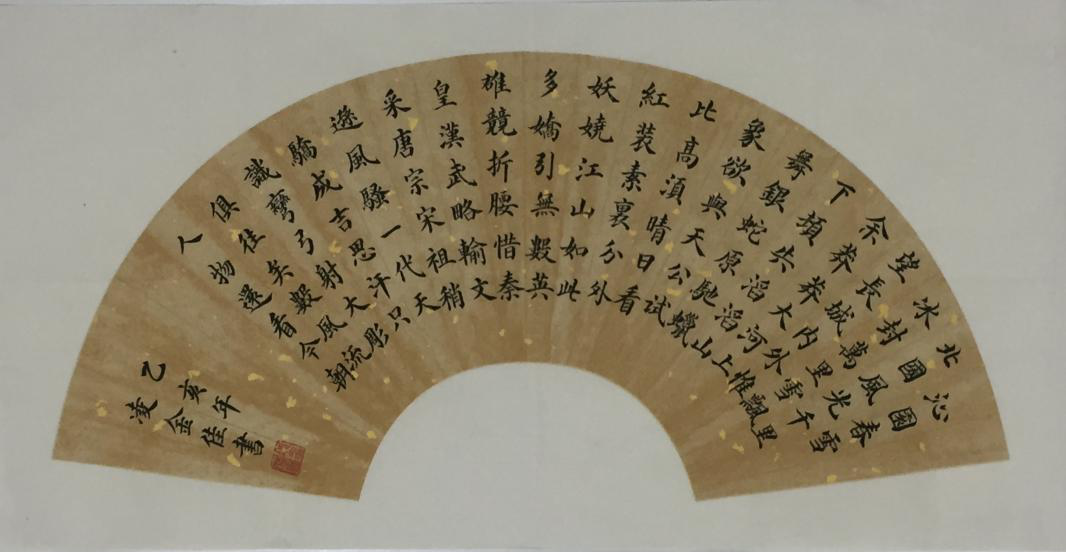 沁園春雪
北國風光千里
冰封萬里雪飄
望長城内外惟
余莽莽大河上
下頓失滔滔山
舞銀蛇原馳蠟
象欲與天公試
比高須晴日看
紅裝素裹分外
妖嬈江山如此
多嬌引無數英
雄競折腰惜秦
皇漢武略輸文
采唐宗宋祖稍
遜風騷一代天
驕成吉思汗只
識彎弓射大彫
俱往矣數風流
人物還看今朝
己亥年
凌金佳書